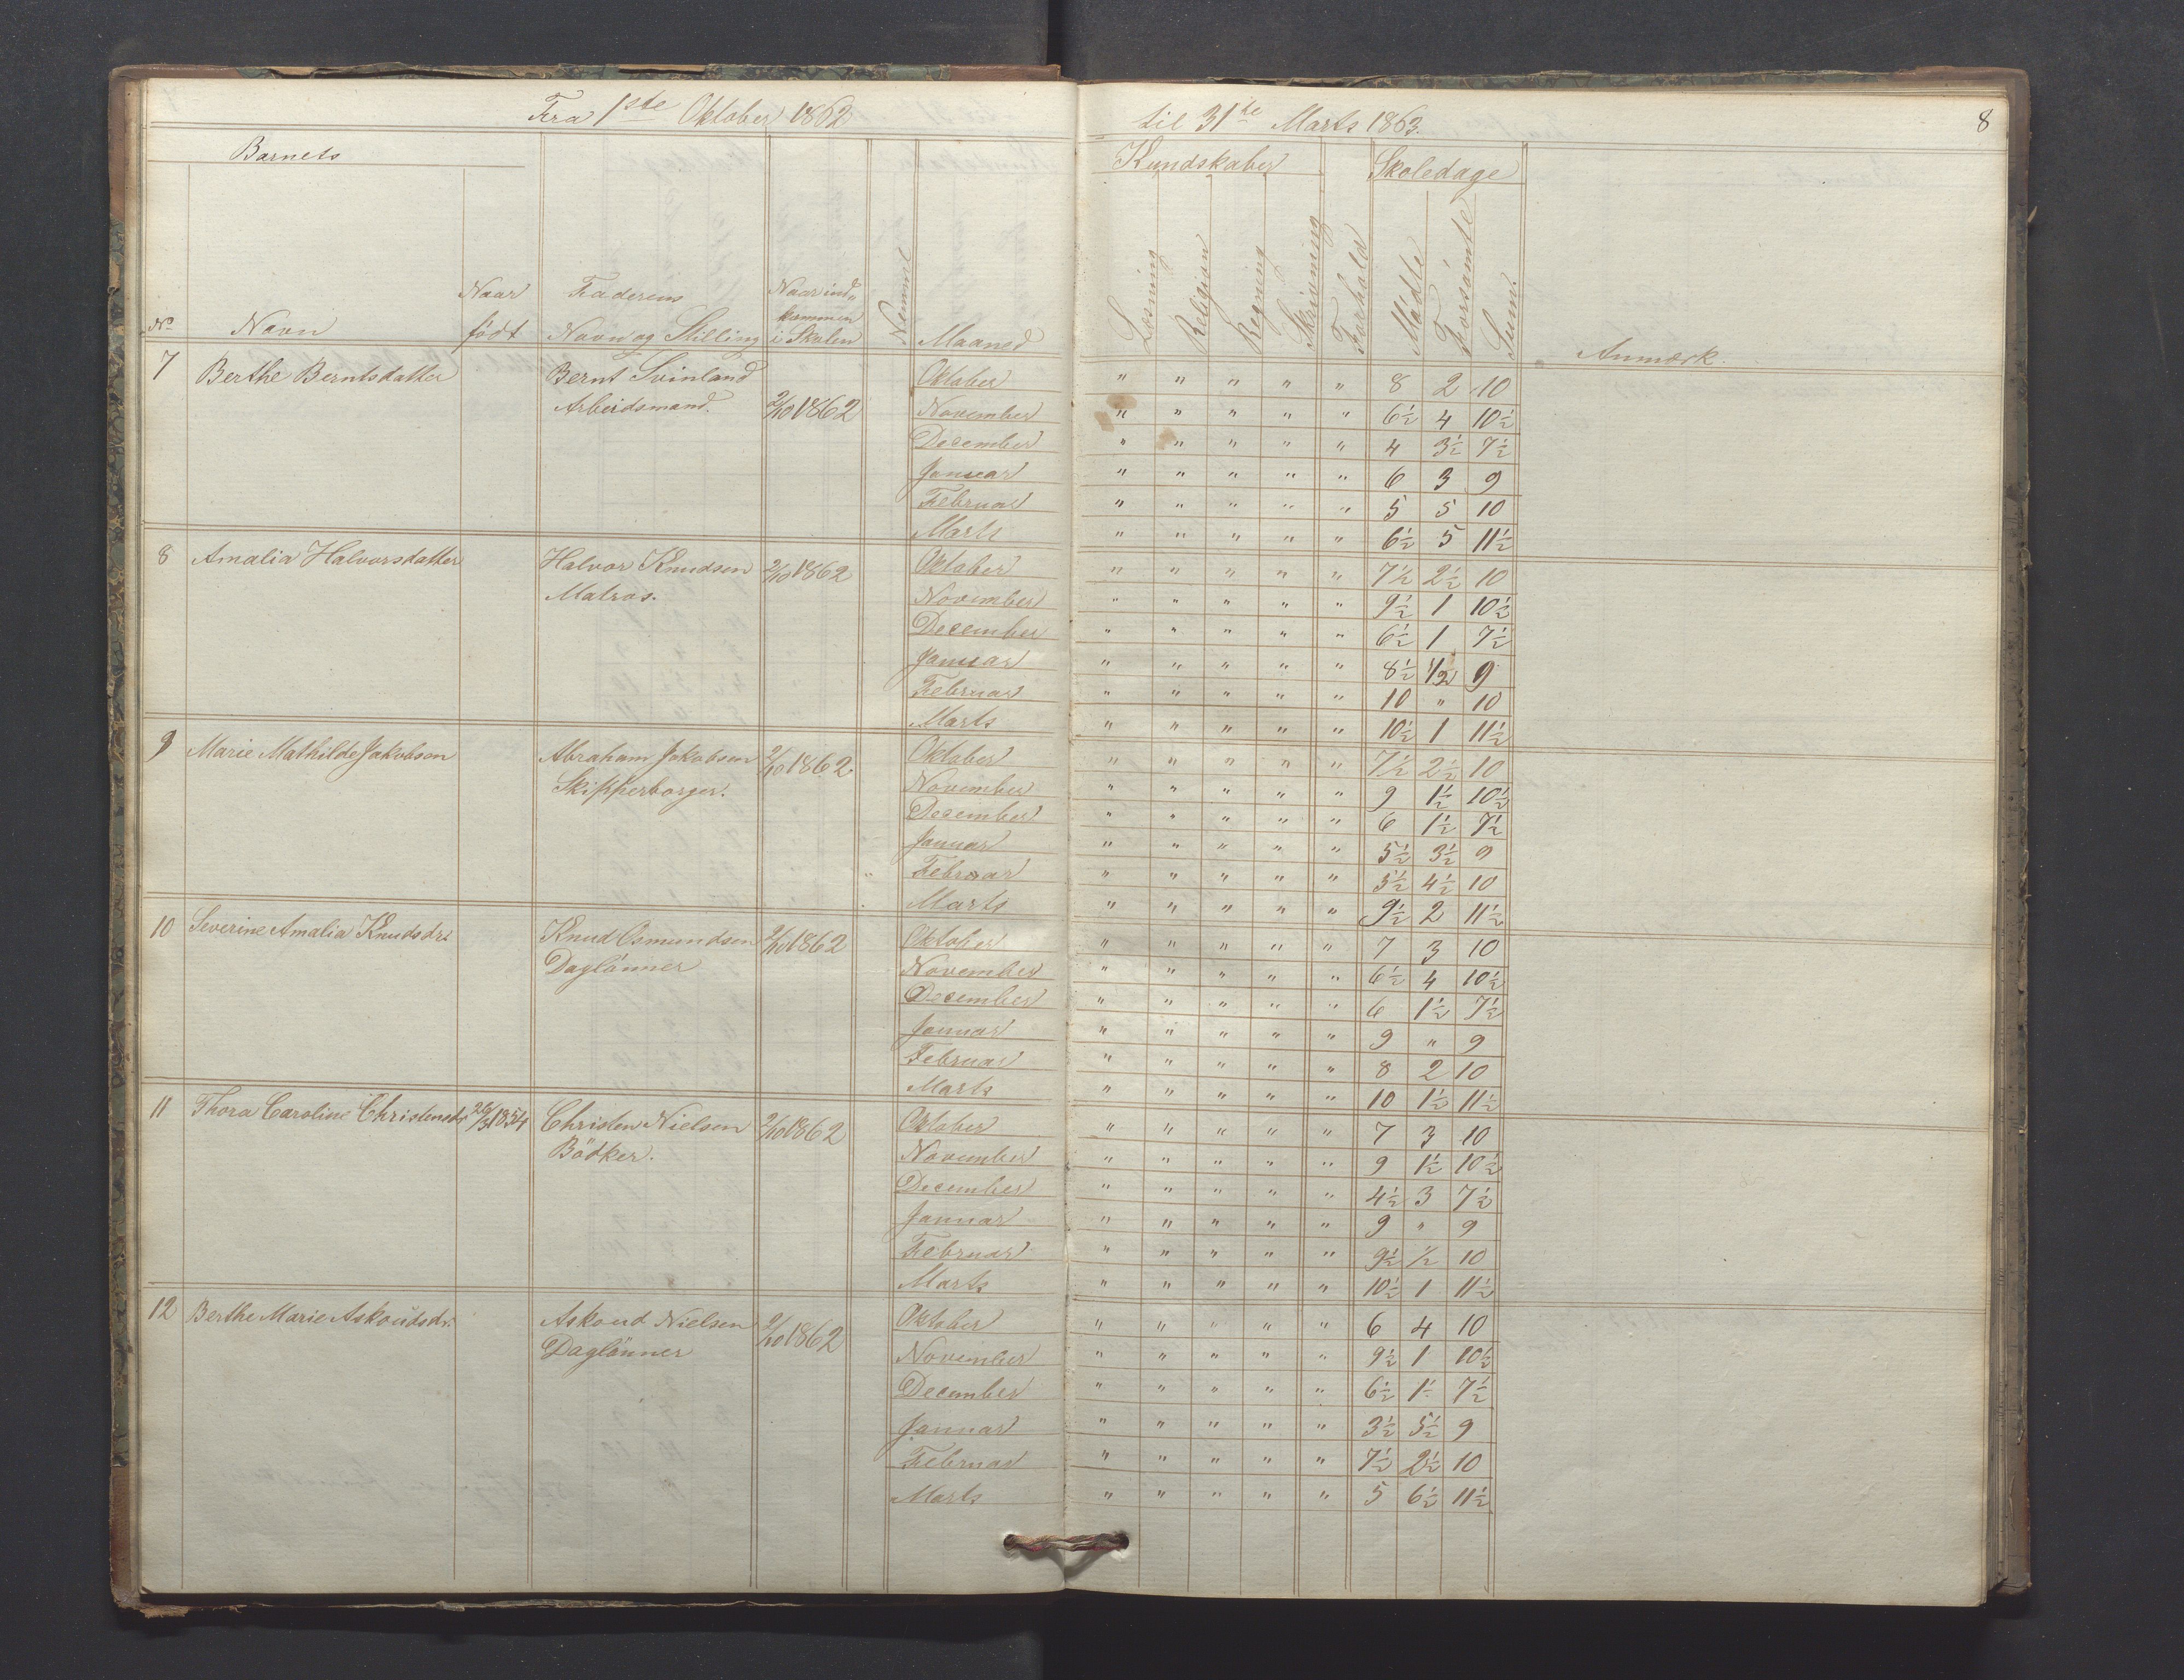 Fra 1ste Oktober 1862 til 31te Marts 1863. 8
Barnets Kundskaber Skoledage
No Navn Naar født Faderens Navn og Stilling Naar ind- kommen i Skolen Nummer Maaned Læsning Religion Regning Skrivning Forhold Mødte Forsømte Sum. Anmærk.
7 Berthe Berntsdatter Bernt Svinland Oktober " " " " " 8 2 10
Arbeidsmand. 2/10 1862 November " " " " " 6½ 4 10½
December " " " " " 4 3½ 7½
Januar " " " " " 6 3 9
Februar " " " " " 5 5 10
Marts " " " " " 6½ 5 11½
8 Amalia Halvorsdatter Halvor Knudsen 2/10 1862 Oktober " " " " " 7½ 2½ 10
Matros. November " " " " " 9½ 1 10½
December " " " " " 6½ 1 7½
Januar " " " " " 8½ 1/2 9
Februar " " " " " 10 " 10
Marts " " " " " 10½ 1 11½
9 Marie Mathilde Jakobsen Abraham Jakobsen 2/10 1862. Oktober " " " " " 7½ 2½ 10
Skipperborger. November " " " " " 9 1½ 10½
December " " " " " 6 1½ 7½
Januar " " " " " 5½ 3½ 9
Februar " " " " " 5½ 4½ 10
Marts " " " " " 9½ 2 11½
10 Severine Amalia Knudsdr: Knud Osmundsen 2/10 1862 Oktober " " " " " 7 3 10
Daglönner November " " " " " 6½ 4 10½
December " " " " " 6 1½ 7½
Januar " " " " " 9 " 9
Februar " " " " " 8 2 10
Marts " " " " " 10 1½ 11½
11 Thora Caroline Christensdr 26/3 1854 Christen Nielsen 2/10 1862 Oktober " " " " " 7 3 10
Bödker. November " " " " " 9 1½ 10½
December " " " " " 4½ 3 7½
Januar " " " " " 9 " 9
Februar " " " " " 9½ ½ 10
Marts " " " " " 10½ 1 11½
12 Berthe Marie Askoudsdr. Askoud Nielsen 2/10 1862 Oktober " " " " " 6 4 10
Daglönner November " " " " " 9½ 1 10½
December " " " " " 6½ 1 7½
Januar " " " " " 3½ 5½ 9
Februar " " " " " 7½ 2½ 10
Marts " " " " " 5 6½ 11½